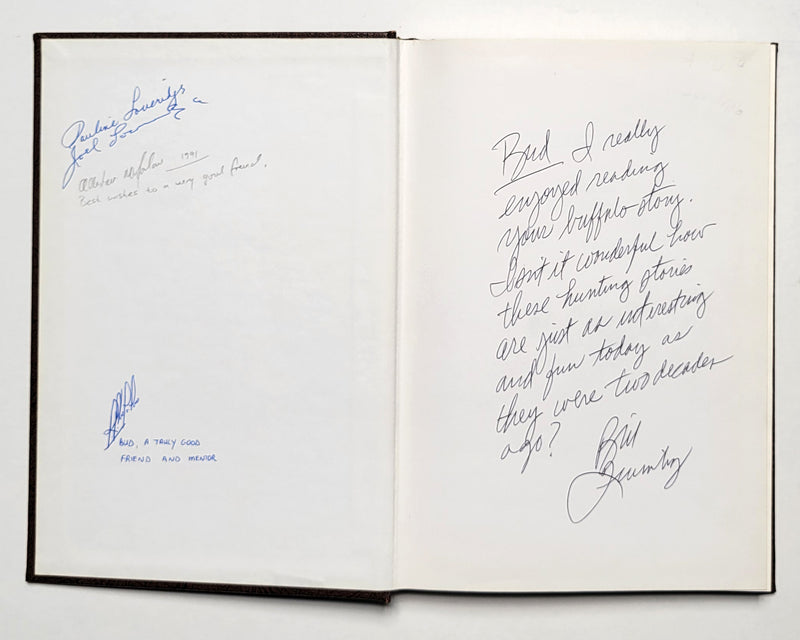 Pauline Loveridge
Joel
1991
Best wishes to a very good friend.
BUD, A TRULY GOOD
FRIEND AND MENTOR
Bud I really
enjoyed reading
your buffalo story.
Isn't it wonderful how
these hunting stories
are just as interesting
and fun today as
they were two decades
ago?
Bill